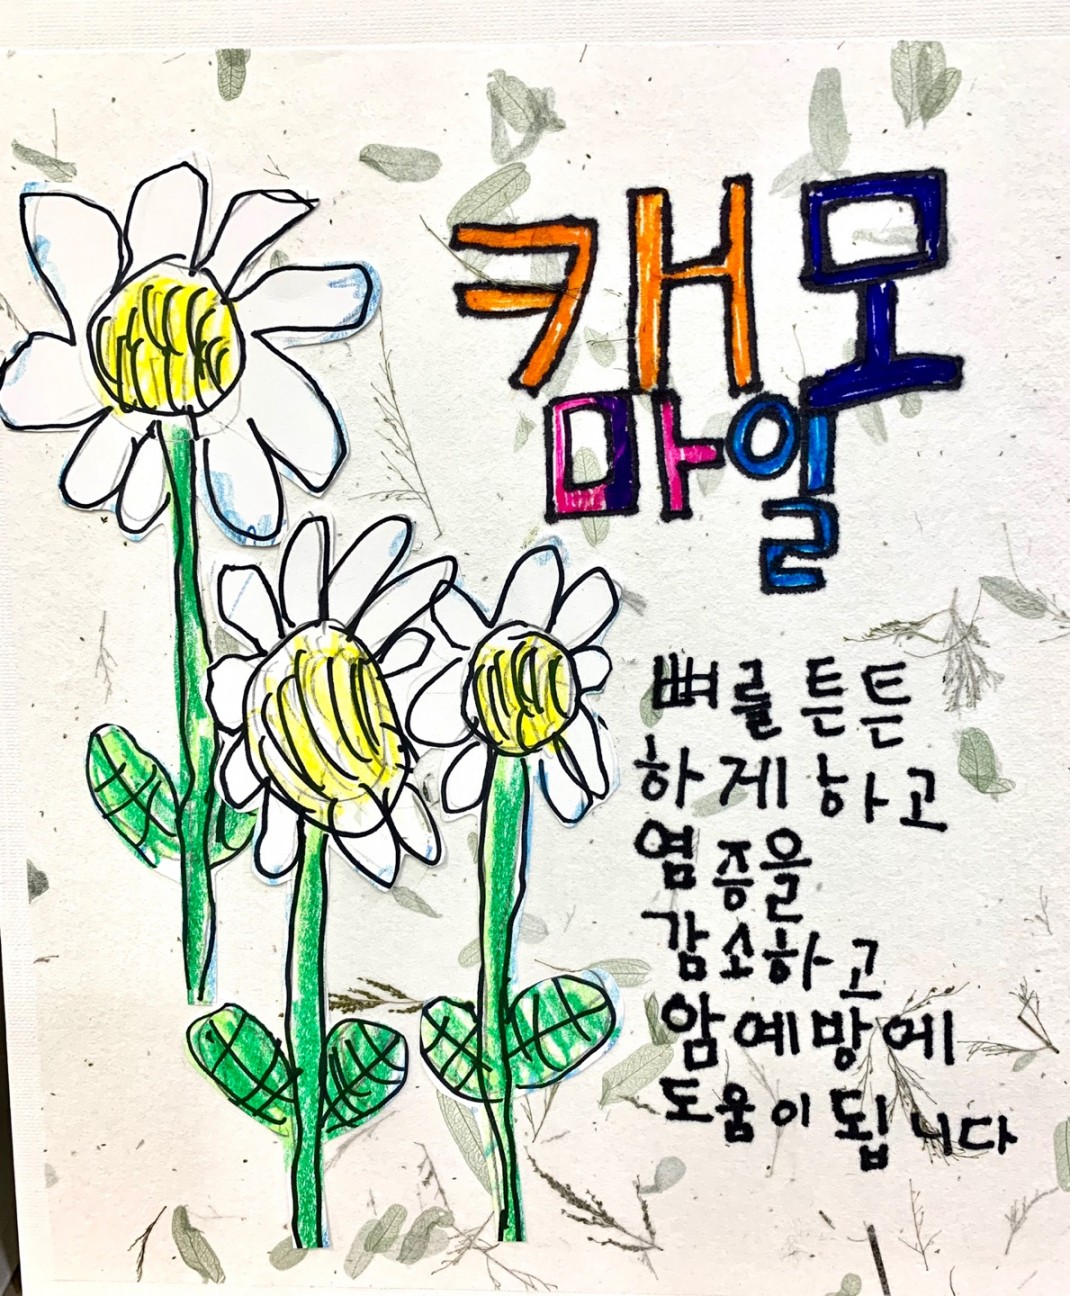 캐모
마일
뼈를 튼튼
하게 하고
염증을
감소하고
암예방에
도움이 됩니다